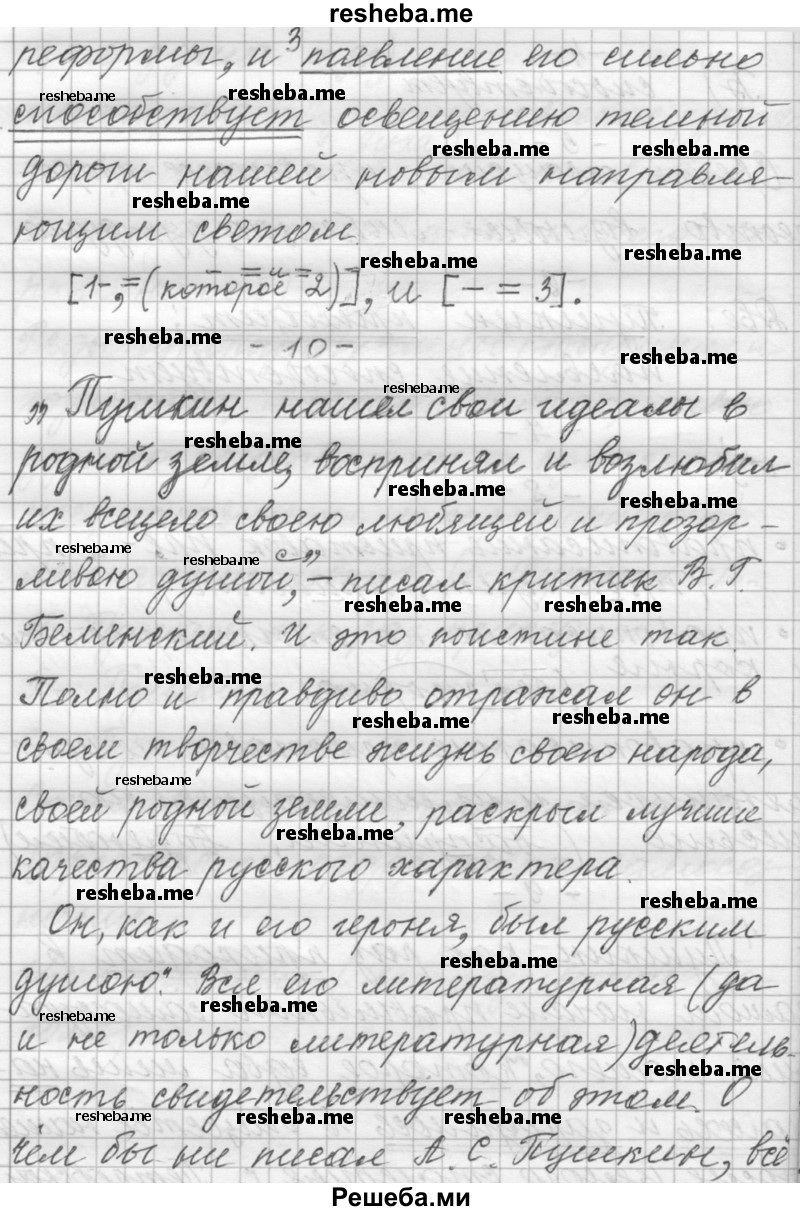 resheba.me
реформы, и ³ паевление его сильно
способствует освещению темной
дороги нашей новым направля-
ющим светом.
[1 - , = (которое = и = 2)], и [ - = 3].
- 10 -
„Пушкин нашел свои идеалы в
родной земле, воспринял и возлюбил
их всецело своею любящей и прозор-
ливою душой," – писал критик В. Г.
Белинский. И это поистине так.
Полно и правдиво отражал он в
своем творчестве жизнь своего народа,
своей родной земли, раскрыл лучшие
качества русского характера.
Он, как и его героня, был русским
душою". Вся его литературная (да
и не только литературная) деятель-
ность свидетельствует об этом. О
чём бы ни писал А. С. Пушкин, всё
Решеба.ми